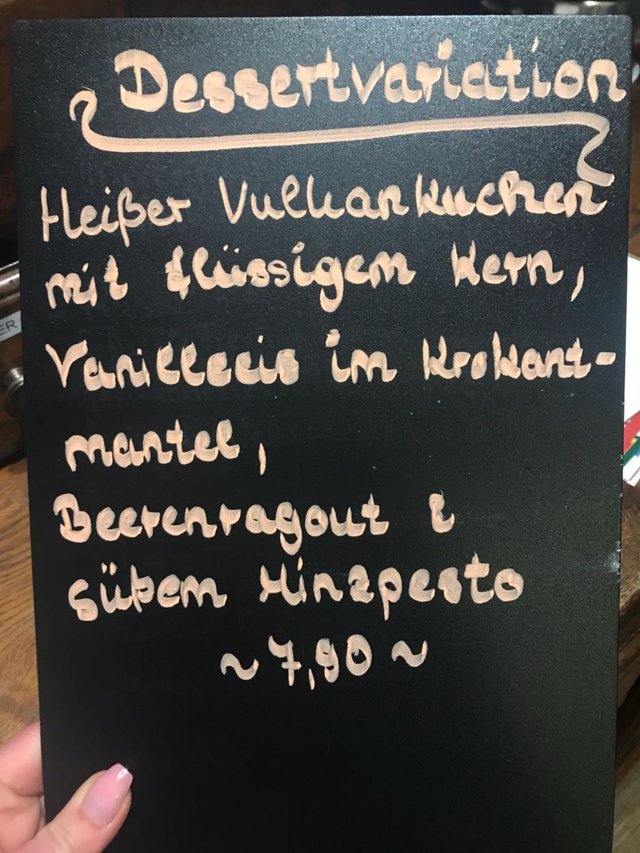 Dessertvariation
Heißer Vulkankuchen
mit flüssigem Kern,
Vanilleeis im Krokant-
mantel,
Beerenragout &
süßem Minzpesto
~ 7,90 ~
ER